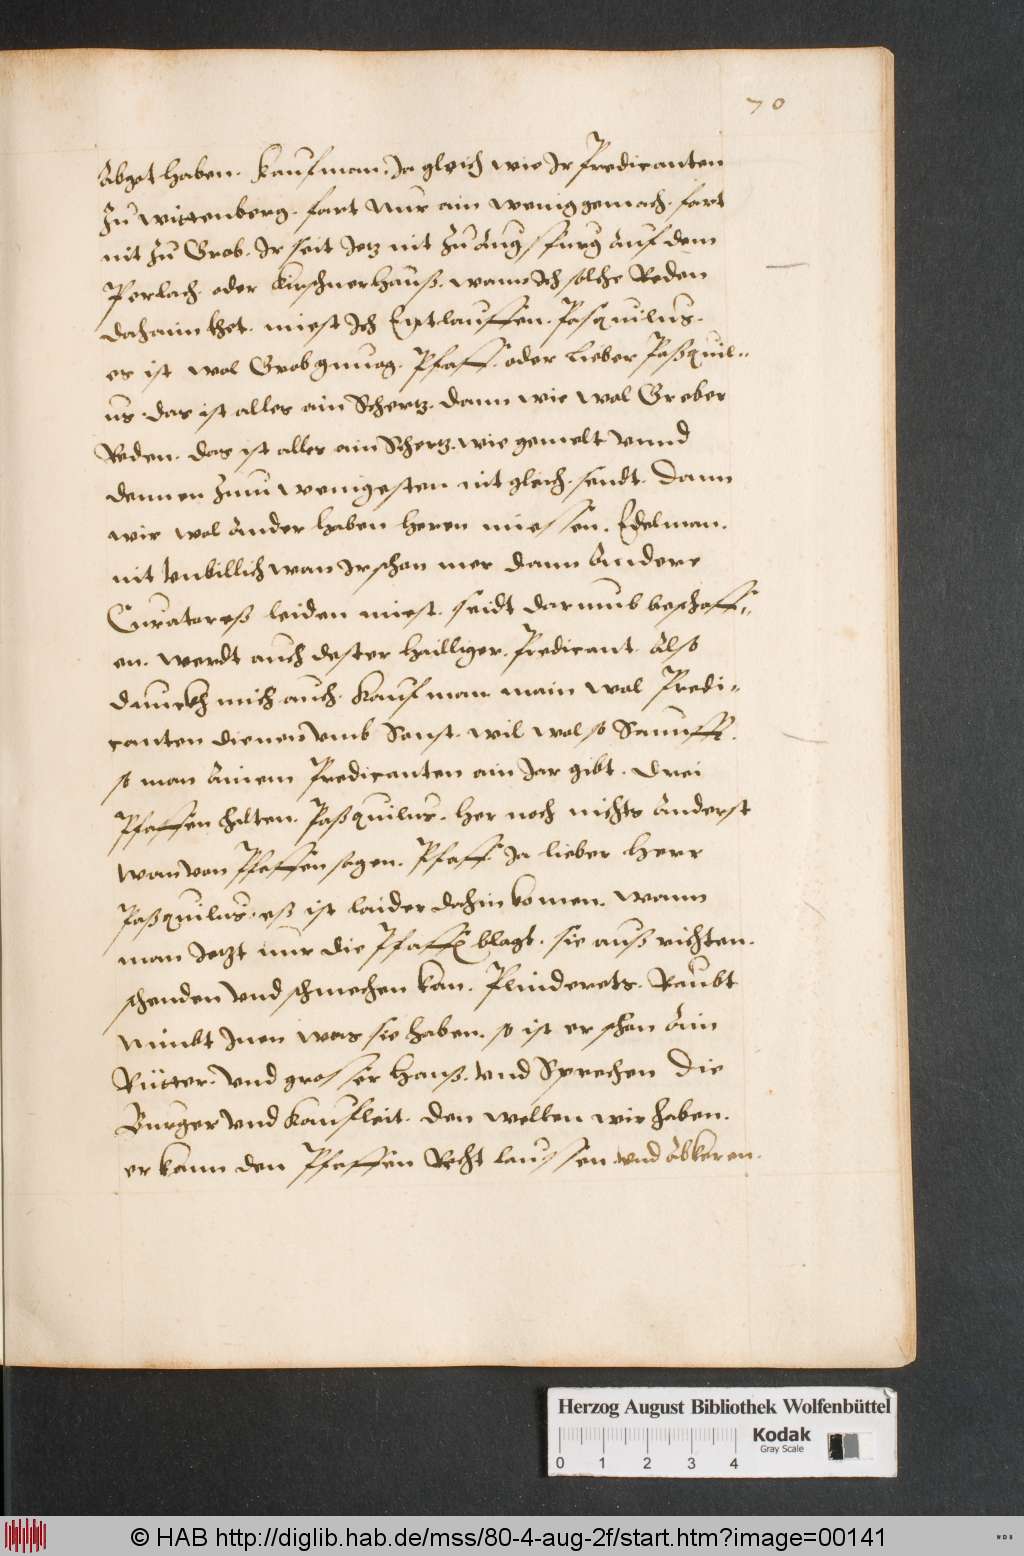 70
Abgot haben. Kaufman. Ja gleich wie Ir Predicanten
Zu Wittenberg. fart Nur ain wenig gemach. fart
nit Zu Grob. Ir seit Jetz nit Zu Augspurg Auf dem
Perlach. oder Kirschnerhauß. wann Ich solche Reden
dahaim thet. miest Ich Entlauffen. Pasquilus.
es ist wol Grob gnuog. Pfaff. oder lieber Paßquil-
us. das ist alles ain Schertz. dann wie wol Greber
Reden. das ist alles ain Schertz. wie gemelt vnnd
dennen Zum wenigesten nit gleich. sendt. Dann
wir wol Ander haben heren miessen. Edelman.
nit vnbillich wan Ir schon mer dann Andere
Curatores leiden miest. seidt darumb beschaff-
en. werdt auch dester hailliger. Predicant. Also
dunckh mich auch. Kaufman. main wol Predi-
canten dienen vmb Sonst. wil wol so
so man Ainem Predicanten ain Jar gibt. Drei
Pfaffen halten. Paßquilus. her noch nichts Anderst
wan von Pfaffen sagen. Pfaff. Ja lieber herr
Paßquilus. eß ist laider dahin komen. wann
man Jetzt nur die Pfaffen blagt. sie auß richten.
schenden vnd schmechen kan. Plinderets. Raubt
Nimbt Inen was sie haben. so ist er schon Ain
Ritter. vnd grosser hanß. vnd Sprechen Die
Burger vnd Kaufleit. den wellen wir haben.
er kann den Pfaffen Recht laussen vnd Abkeren.
Herzog August Bibliothek Wolfenbüttel
Kodak
Gray Scale
0 1 2 3 4
© HAB http://diglib.hab.de/mss/80-4-aug-2f/start.htm?image=00141